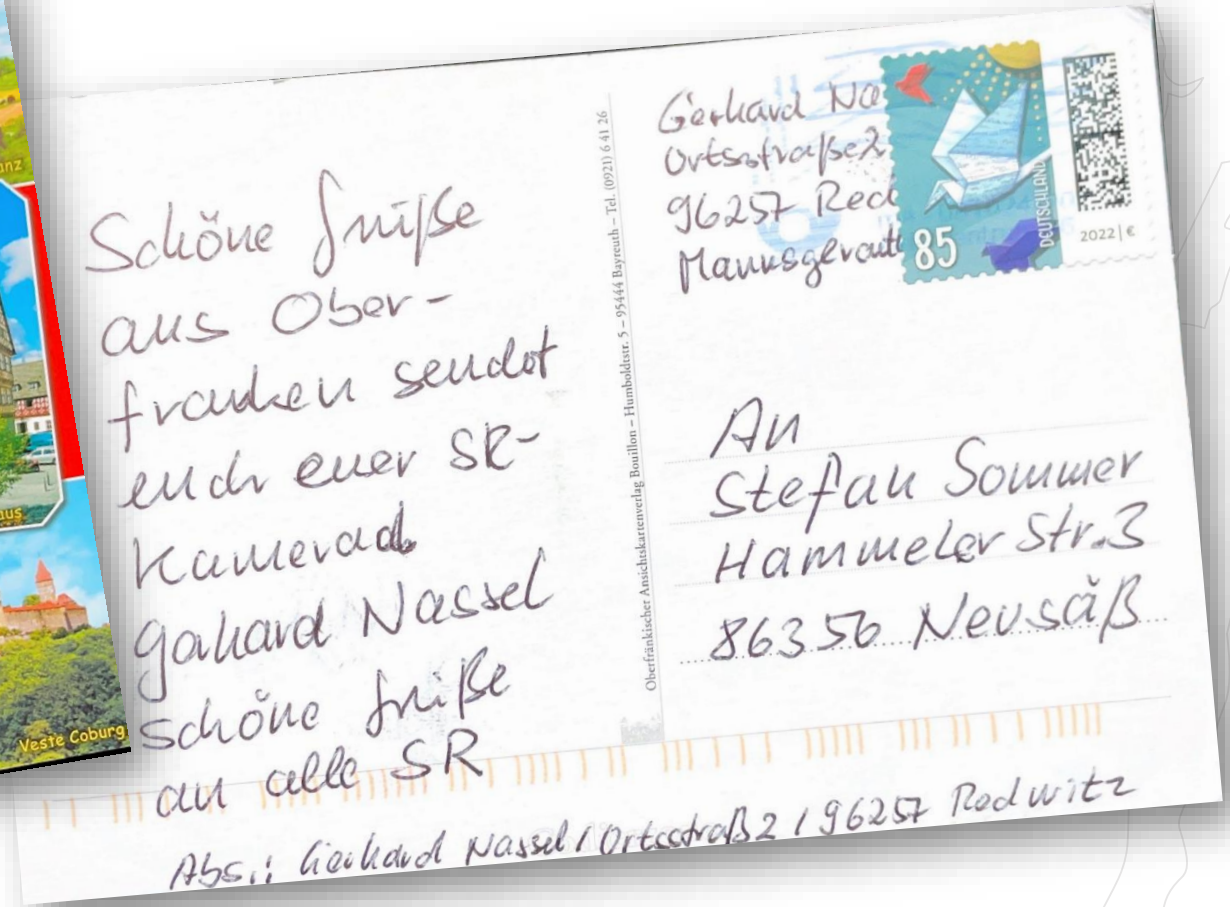 anz
aus
Veste Coburg
Schöne Grüße
aus Ober-
franken sendet
euch euer SR-
Kamerad
Gerhard Nassel
schöne Grüße
an alle SR
Oberfränkischer Ansichtskartenverlag Bouillon – Humboldtstr. 5 – 95444 Bayreuth – Tel. (0921) 6 41 26
Gerhard Na
Ortsstraße 2
96257 Red
Mannsgereuth
85
DEUTSCHLAND
2022 | €
An
Stefan Sommer
Hammeler Str. 3
86356 Neusäß
Abs.: Gerhard Nassel / Ortsstraß 2 / 96257 Redwitz